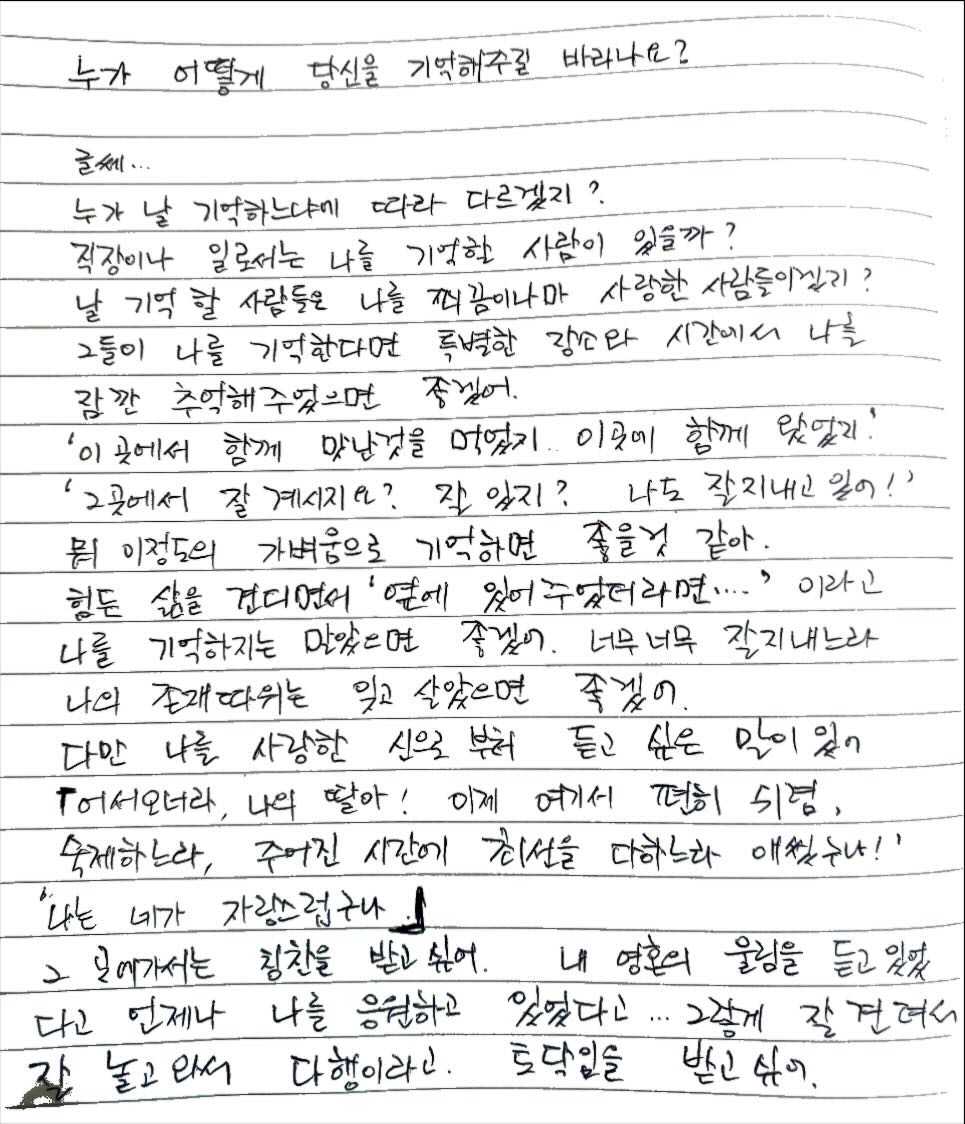 누가 어떻게 당신을 기억해주길 바라나요?
글쎄...
누가 날 기억하느냐에 따라 다르겠지?
직장이나 일로서는 나를 기억할 사람이 있을까?
날 기억 할 사람들은 나를 쬐끔이나마 사랑한 사람들이겠지?
그들이 나를 기억한다면 특별한 장소와 시간에서 나를
잠깐 추억해주었으면 좋겠어.
'이 곳에서 함께 맛난것을 먹었지.. 이곳에 함께 왔었지.'
'그곳에서 잘 계시지요? 잘 있지? 나도 잘지내고 있어!'
뭐 이정도의 가벼움으로 기억하면 좋을것 같아.
힘든 삶을 견디면서 '옆에 있어주었더라면....' 이라고
나를 기억하지는 말았으면 좋겠어. 너무너무 잘지내느라
나의 존재따위는 잊고 살았으면 좋겠어.
다만 나를 사랑한 신으로 부터 듣고 싶은 말이 있어
「어서오너라, 나의 딸아! 이제 여기서 편히 쉬렴,
숙제하느라, 주어진 시간에 최선을 다하느라 애썼구나!'
"나는 네가 자랑스럽구나.」
그 곳에가서는 칭찬을 받고 싶어. 내 영혼의 울림을 듣고 있었
다고 언제나 나를 응원하고 있었다고... 그렇게 잘 견뎌서
잘 놀고 와서 다행이라고. 토닥임을 받고 싶어.